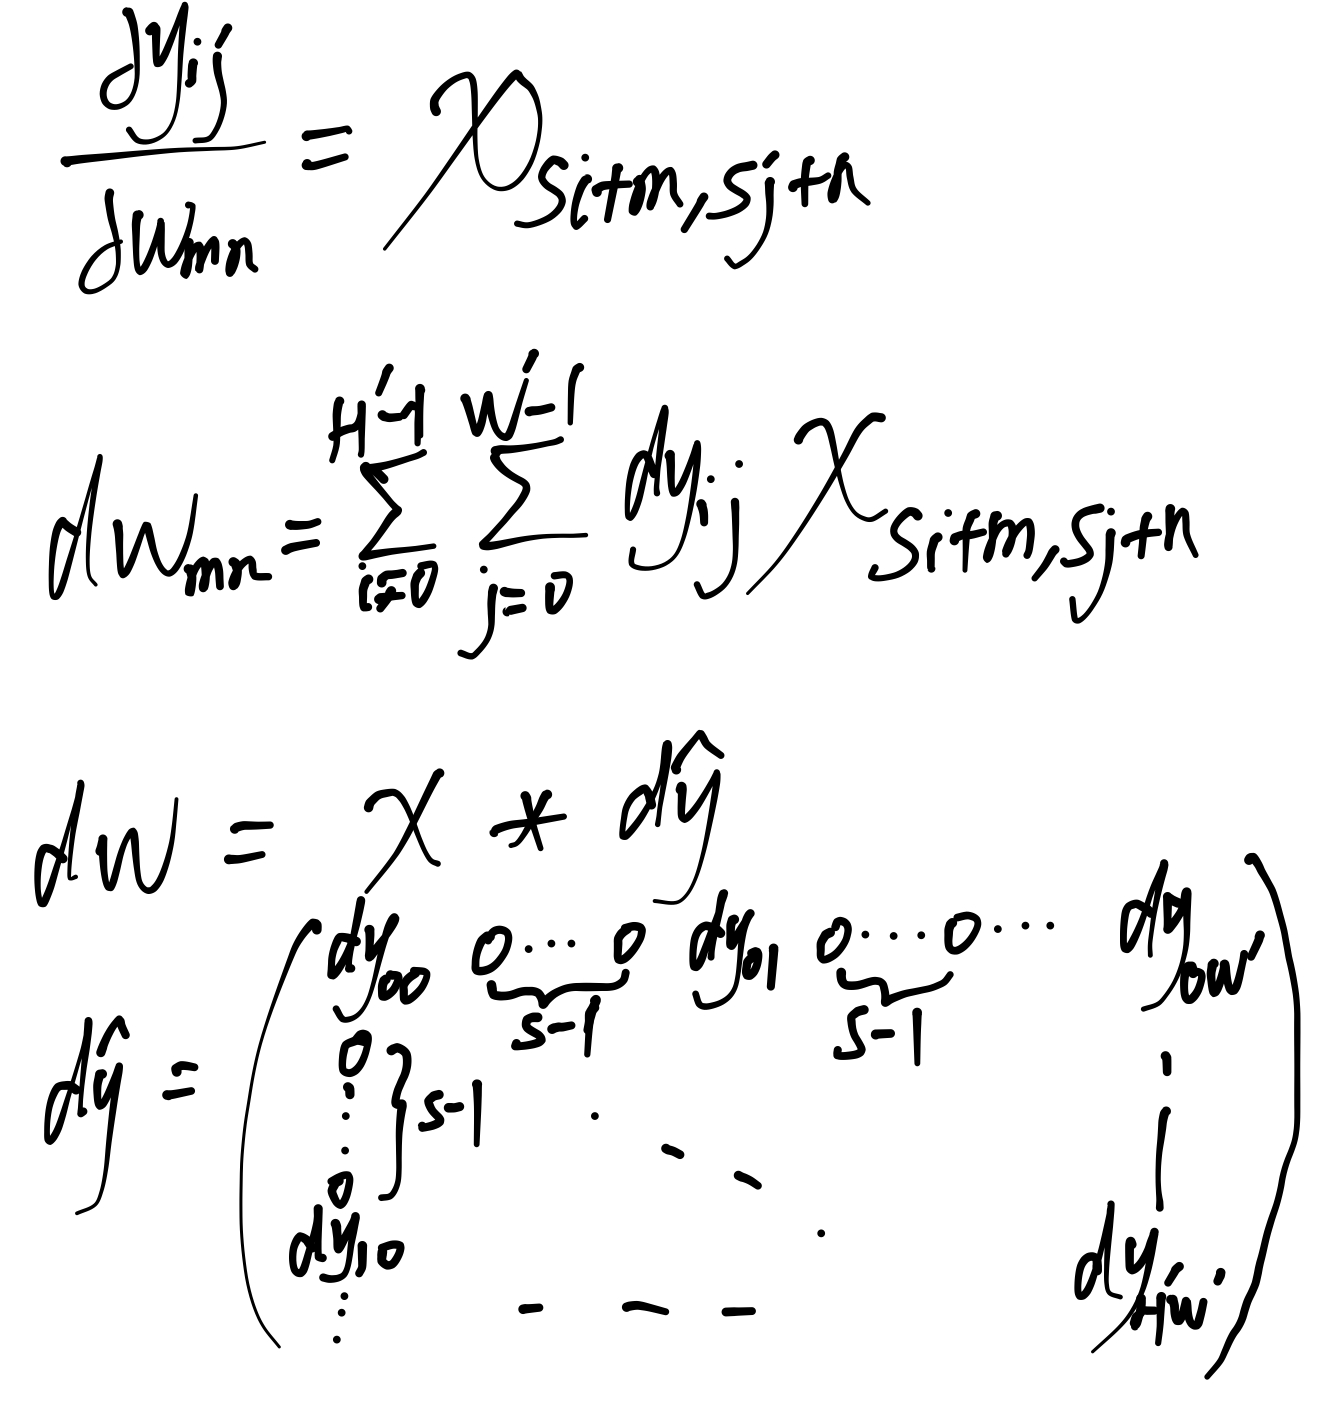 dy_ij / dw_mn = x_{si+m, sj+n}
dw_mn = Σ_{i=0}^{H'-1} Σ_{j=0}^{W'-1} dy_ij x_{si+m, sj+n}
dw = x * dŷ
dŷ = ( dy_00 0 ··· 0 dy_01 0 ··· 0 ··· dy_0W'
s-1 s-1
0
⋮ } s-1 ⋱
0
dy_10 dy_H'W' )